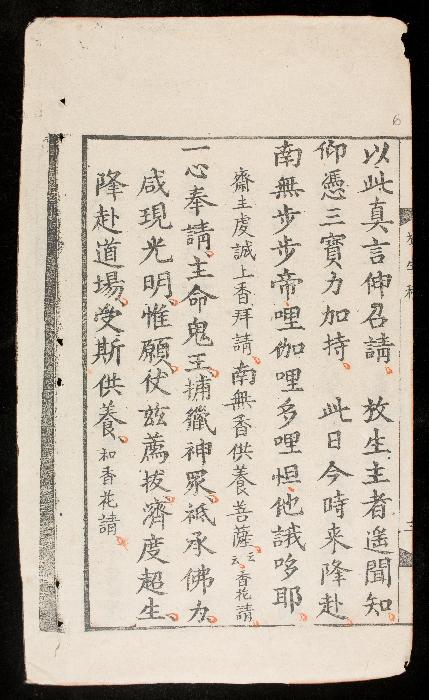 6
放生科
三
以此真言伸召請　放生主者遙聞知
仰憑三寳力加持　此日今時来降赴
南無步步帝哩伽哩多哩怛他誐哆耶
齋主虔誠上香拜請南無香供養菩薩云云香花請
一心奉請主命鬼王捕獵神眾祇承佛力
咸現光明惟願仗玆薦拔濟度超生
降赴道場受斯供養和香花請